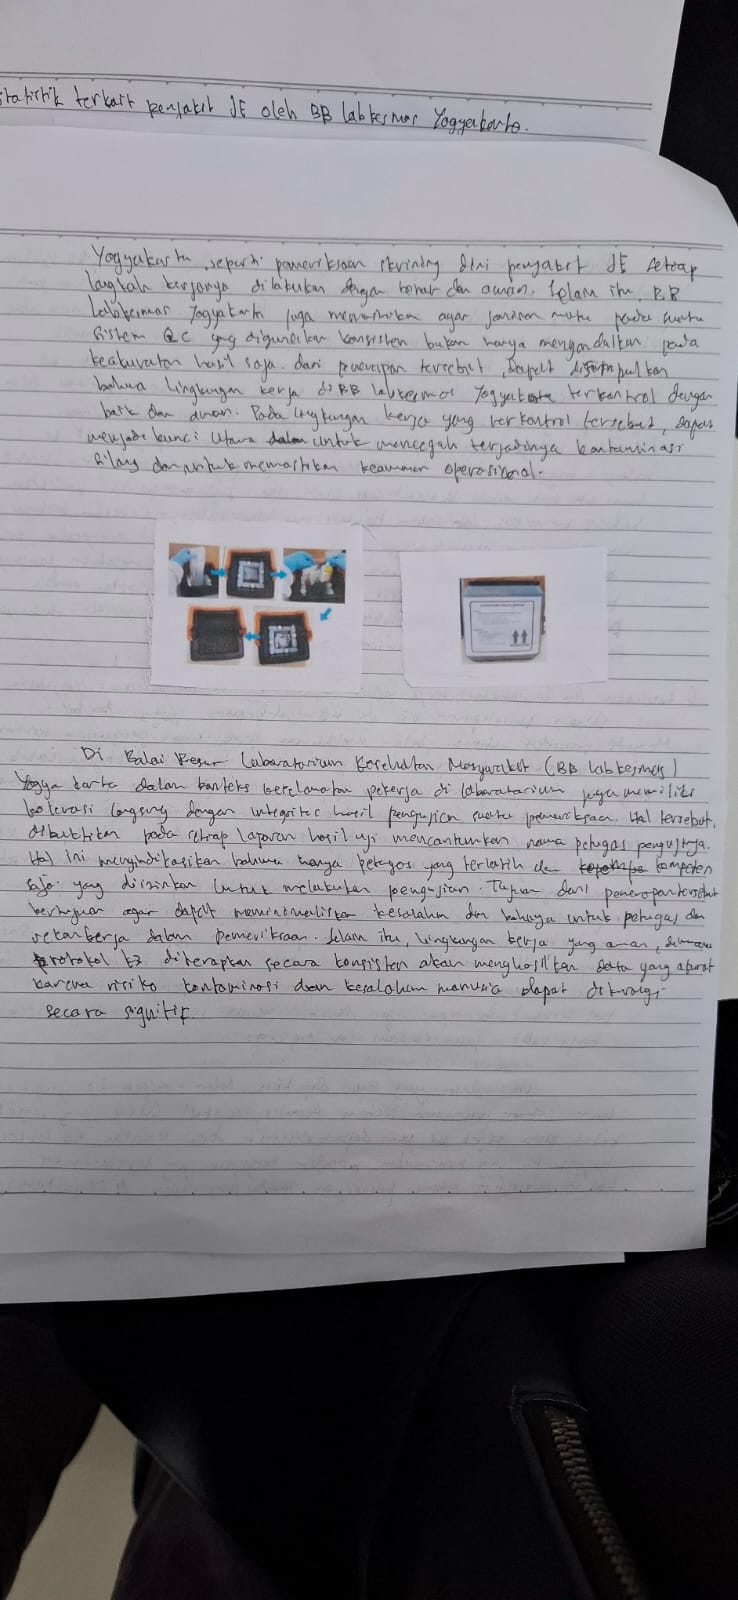 statistik terkait penyakit JE oleh BB labkesmas Yogyakarta.
Yogyakarta, seperti pemeriksaan skrining dini penyakit JE setiap
langkah kerjanya dilakukan dengan benar dan aman. Selain itu, BB
Labkesmas Yogyakarta juga memastikan agar jaminan mutu pada suatu
sistem QC yang digunakan konsisten bukan hanya mengandalkan pada
keakuratan hasil saja. dari penerapan tersebut, dapat disimpulkan
bahwa lingkungan kerja di BB labkesmas Yogyakarta terkontrol dengan
baik dan aman. Pada lingkungan kerja yang terkontrol tersebut, dapat
menjadi kunci utama untuk mencegah terjadinya kontaminasi
silang dan untuk memastikan keamanan operasional.
Di Balai Besar Laboratorium Kesehatan Masyarakat (BB labkesmas)
Yogyakarta dalam konteks keselamatan pekerja di laboratorium juga memiliki
kolerasi langsung dengan integritas hasil pengujian suatu pemeriksaan. Hal tersebut,
dibuktikan pada setiap laporan hasil uji mencantumkan nama petugas pengujinya.
Hal ini mengindikasikan bahwa hanya petugas yang terlatih dan kompeten
saja yang diizinkan untuk melakukan pengujian. Tujuan dari penerapan tersebut
bertujuan agar dapat meminimaliskan kesalahan dan bahaya untuk petugas dan
rekan kerja dalam pemeriksaan. Selain itu, lingkungan kerja yang aman, dimana
protokol k3 diterapkan secara konsisten akan menghasilkan data yang akurat
karena risiko kontaminasi dan kesalahan manusia dapat dikurangi
secara signifik